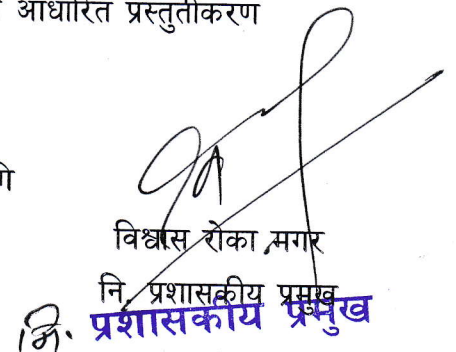 आधारित प्रस्तुतीकरण
विश्वास रोका मगर
नि. प्रशासकीय प्रमुख
नि. प्रशासकीय प्रमुख